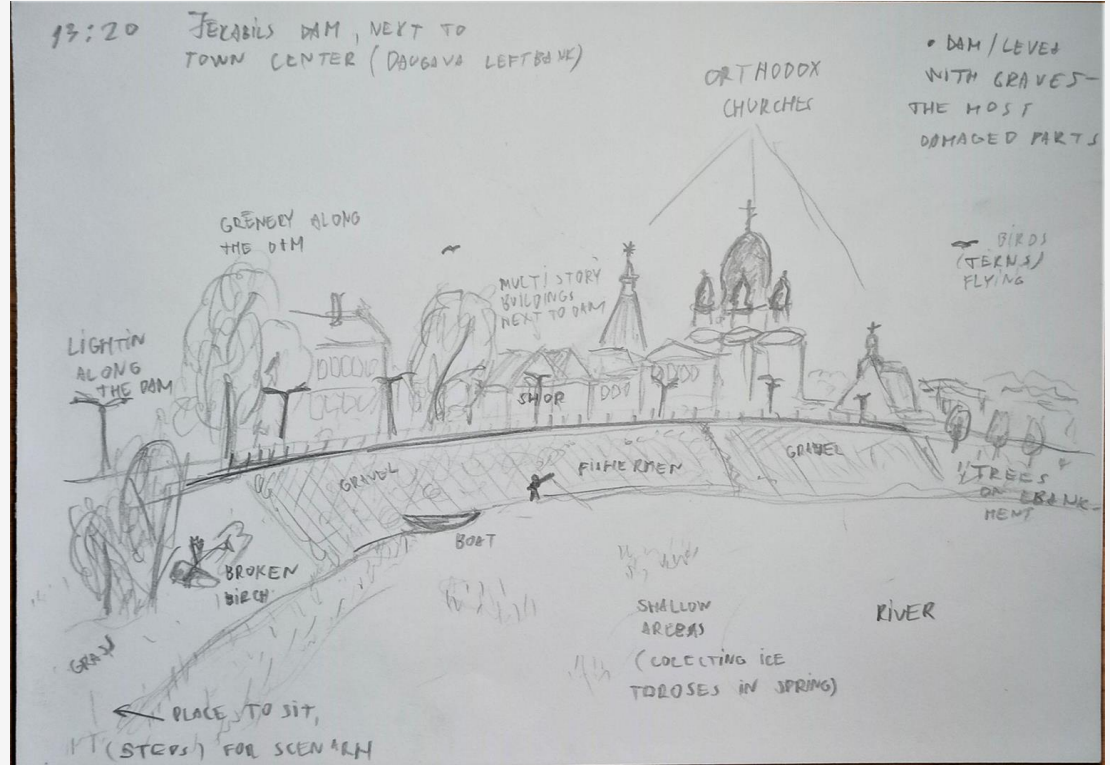 13:20
JEKABILS DAM, NEXT TO
TOWN CENTER (DAUGAVA LEFTBANK)
ORTHODOX
CHURCHES
• DAM/LEVEA
WITH GRAVES-
THE MOST
DAMAGED PARTS
GRĒNERY ALONG
THE DAM
BIRDS
(TERNS)
FLYING
MULTI STORY
BUILDINGS
NEXT TO DAM
LIGHTIN
ALONG
THE DAM
SHOP
GRAVEL
FISHERMEN
GRAVEL
TREES
ON EBANK-
MENT
BOAT
BROKEN
BIRCH
GRASS
SHALLOW
(COLECTING ICE
TOROSES IN SPRING)
RIVER
PLACE TO SIT,
(STEPS) FOR